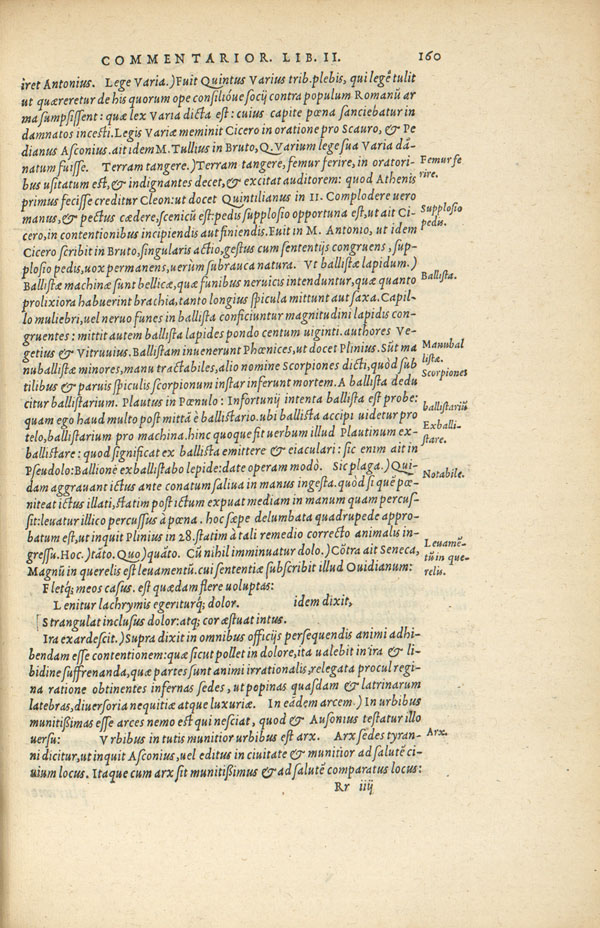 COMMENTARIOR. LIB. II. 160
iret Antonius. Lege Varia.) Fuit Quintus Varius trib. plebis, qui legē tulit
ut quæreretur de his quorum ope consilióue socij contra populum Romanū ar
ma sumpsissent: quæ lex Varia dicta est: cuius capite pœna sanciebatur in
damnatos incesti. Legis Variæ meminit Cicero in oratione pro Scauro, & Pe
dianus Asconius. ait idem M. Tullius in Bruto, Q. Varium lege sua Varia dā-
natum fuisse. Terram tangere.) Terram tangere, femur ferire, in oratori-
Femur fe
bus usitatum est, & indignantes decet, & excitat auditorem: quod Athenis
rire.
primus fecisse creditur Cleon: ut docet Quintilianus in 11. Complodere uero
manus, & pectus cædere, scenicū est: pedis supplosio opportuna est, ut ait Ci-
Supplosio
cero, in contentionibus incipiendis aut finiendis. Fuit in M. Antonio, ut idem
pedis.
Cicero scribit in Bruto, singularis actio, gestus cum sententijs congruens, sup-
plosio pedis, uox permanens, uerùm subrauca natura. Vt ballistæ lapidum.)
Ballistæ machinæ sunt bellicæ, quæ funibus neruicis intenduntur, quæ quanto
Ballista.
prolixiora habuerint brachia, tanto longius spicula mittunt aut saxa. Capil-
lo muliebri, uel neruo funes in ballista conficiuntur magnitudini lapidis con-
gruentes: mittit autem ballista lapides pondo centum uiginti. authores Ve-
getius & Vitruuius. Ballistam inuenerunt Phœnices, ut docet Plinius. Sūt ma
Manubal
nuballistæ minores, manu tractabiles, alio nomine Scorpiones dicti, quòd sub
listæ.
tilibus & paruis spiculis scorpionum instar inferunt mortem. A ballista dedu
Scorpiones
citur ballistarium. Plautus in Pœnulo: Infortunij intenta ballista est probe:
quam ego haud multo post mittā è ballistario. ubi ballista accipi uidetur pro
ballistariū
telo, ballistarium pro machina. hinc quoque fit uerbum illud Plautinum ex-
Exballi-
ballistare: quod significat ex ballista emittere & eiaculari: sic enim ait in
stare.
Pseudolo: Ballionē exballistabo lepide: date operam modò. Sic plaga.) Qui-
dam aggrauant ictus ante conatum saliua in manus ingesta. quòd si quē pœ-
Notabile.
niteat ictus illati, statim post ictum expuat mediam in manum quam percus-
sit: leuatur illico percussus à pœna. hoc sæpe delumbata quadrupede appro-
batum est, ut inquit Plinius in 28. statim à tali remedio correcto animalis in-
gressu. Hoc.) tāto. Quo) quāto. Cū nihil imminuatur dolo.) Cōtra ait Seneca,
Leuamē-
Magnū in querelis est leuamentū. cui sententiæ subscribit illud Ouidianum:
tū in que-
Fletq; meos casus. est quædam flere uoluptas:
relis.
Lenitur lachrymis egeriturq; dolor. idem dixit,
Strangulat inclusus dolor: atq; cor æstuat intus.
Ira exardescit.) Supra dixit in omnibus officijs persequendis animi adhi-
bendam esse contentionem: quæ sicut pollet in dolore, ita ualebit in ira & li-
bidine suffrenanda, quæ partes sunt animi irrationalis, relegata procul regi-
na ratione obtinentes infernas sedes, ut popinas quasdam & latrinarum
latebras, diuersoria nequitiæ atque luxuriæ. In eādem arcem.) In urbibus
munitißimas esse arces nemo est qui nesciat, quod & Ausonius testatur illo
uersu: Vrbibus in tutis munitior urbibus est arx. Arx sedes tyran-
Arx.
ni dicitur, ut inquit Asconius, uel editus in ciuitate & munitior ad salutē ci-
uium locus. Itaque cum arx sit munitißimus & ad salutē comparatus locus:
Rr iiij